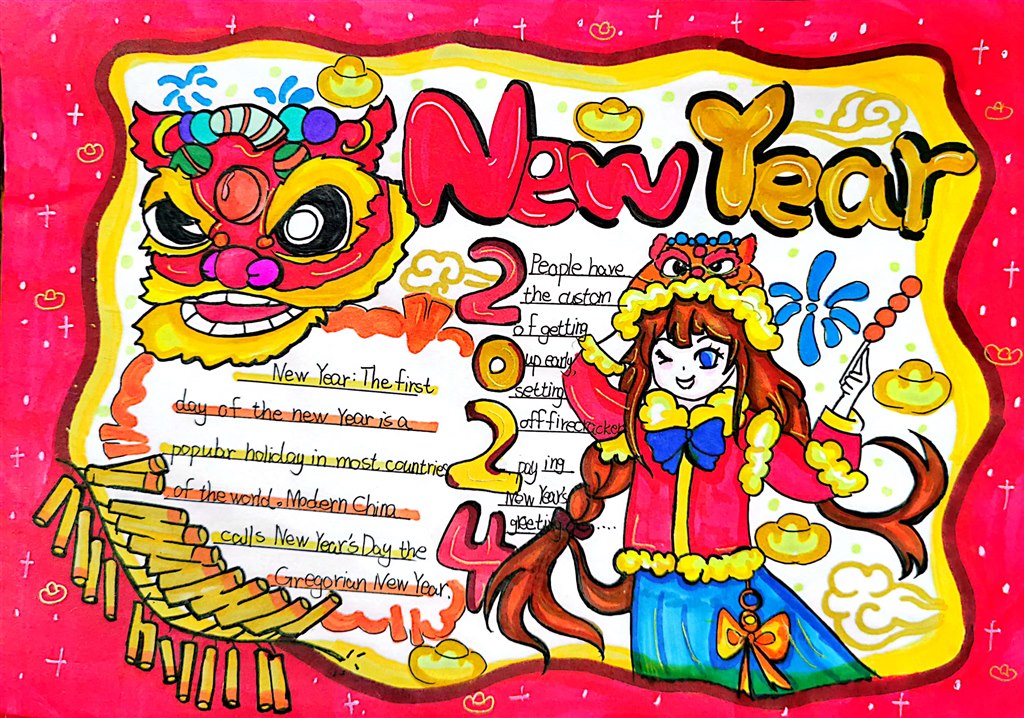 New Year
New Year: The first
day of the new Year is a
popular holiday in most countries
of the world. Modern China
calls New Year's Day the
Gregorian New Year.
2
0
2
4
People have
the custom
of getting
up early,
setting
off firecracker
paying
New Year's
greeting ....